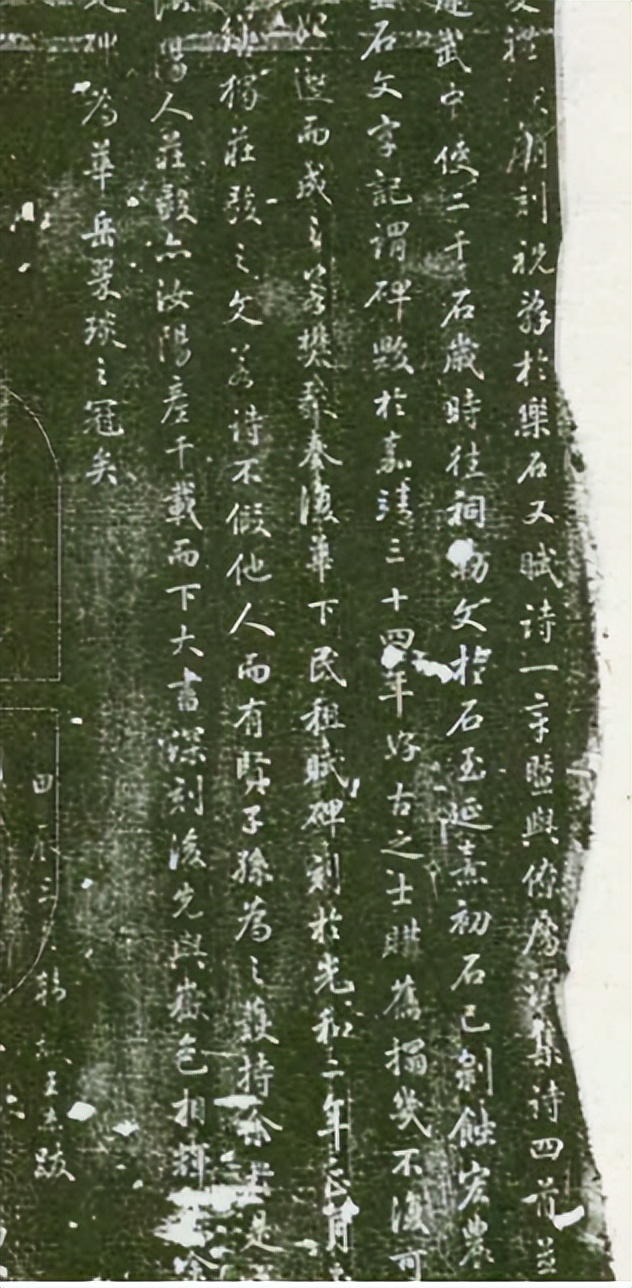 文禮 朔刻祝辭於樂石又賦詩一章暨與僚屬 集詩四首並
建武中使二千石歲時往祠勒文於石至延熹初石已剝蝕宏農
石文字記謂碑毀於嘉靖三十四年好古之士購舊搨幾不復可
邈而成之若樊毅奏復華下民租賦碑刻於光和二年 月
獨莊毅之文若詩不假他人而有賢子孫為之護持余 是
陽人莊毅亦汝陽產千載而下大書深刻後先與嶽色相輝 余
碑為華岳翠琰之冠矣
跋